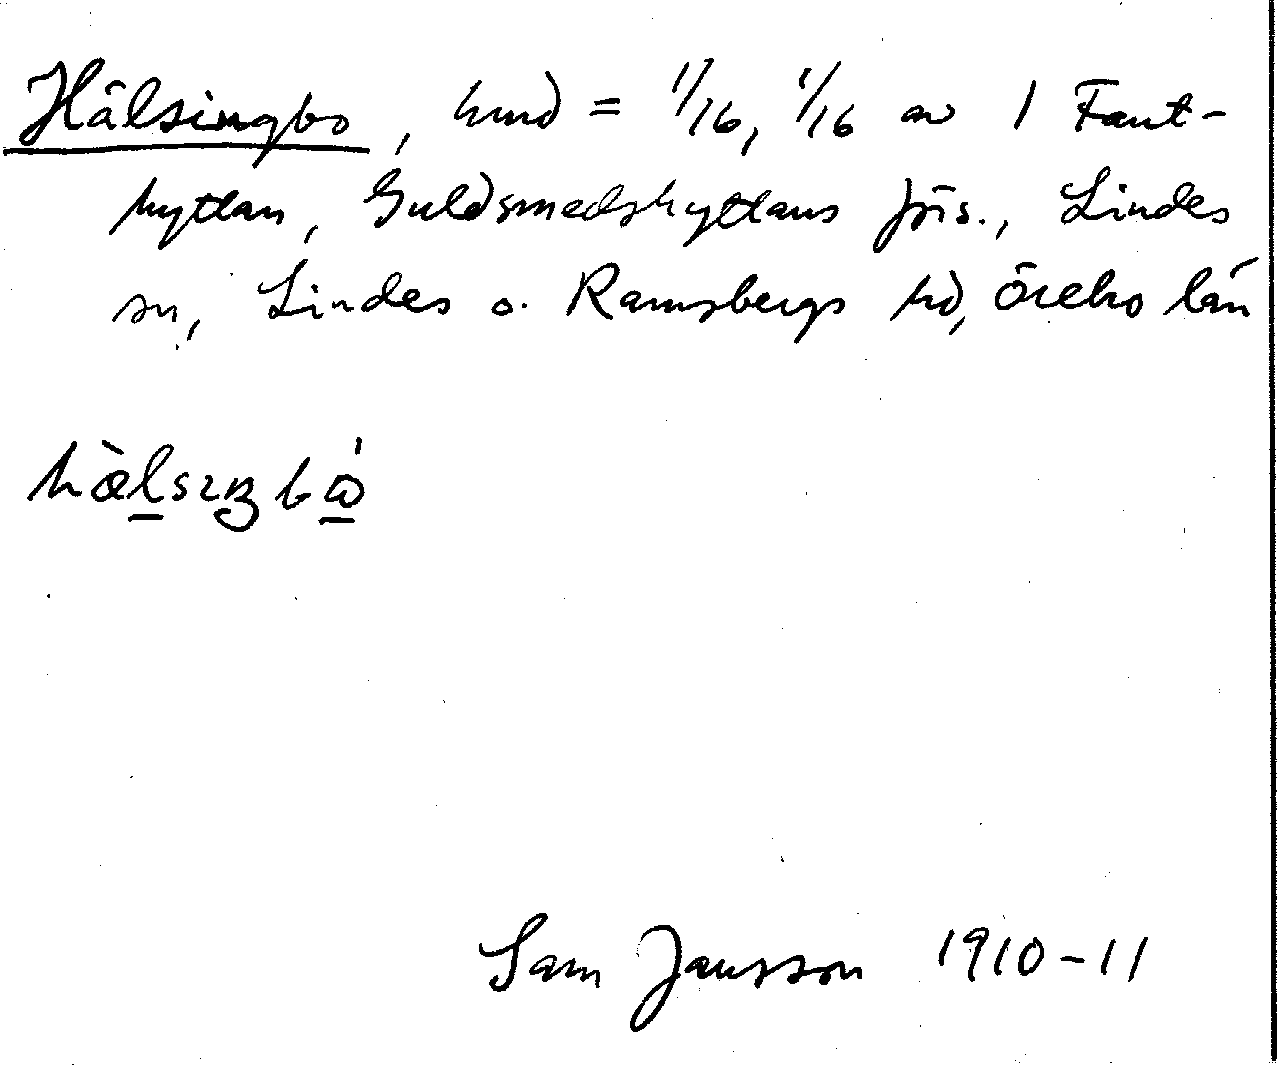 Hälsingbo, hmd = 1/16, 1/16 av 1 Fant-
hyttan, Guldsmedshyttans förs., Lindes
sn, Lindes o. Ramsbergs hd, Örebro län
hæ̀lsıŋbω̍
Sam Jansson 1910-11